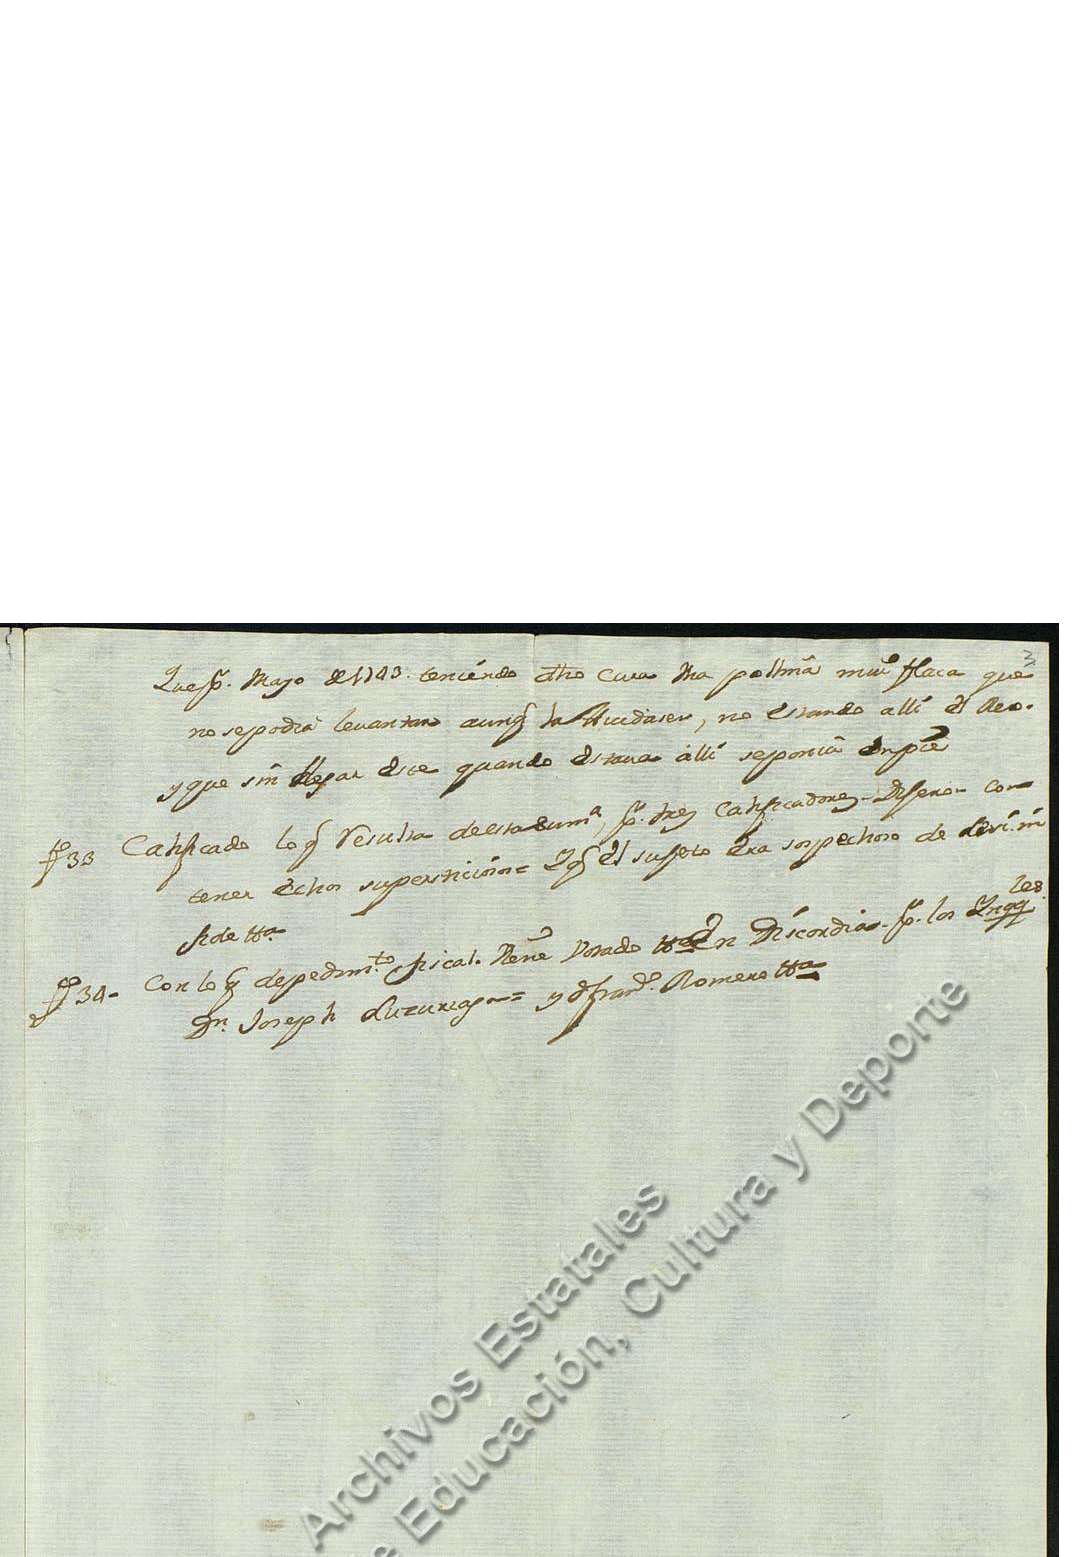 Que pr. Mayo de 1743. teniendo dho cura Una pollina mui flaca que
no se podia levantar aunq la Aiudasen, no estando alli el Reo.
y que sin llegar este quando estava alli se ponia en pie
fo 33 Calificado lo q resulta de esta sumª, pr. tres Calificadores Dijeron con
tener echos supersticiosos = Y q el sujeto era sospechoso de levi. in
fide ttª
fo 34 - Con lo q de pedimto fiscal. Votado en Discordia pr. los Ynqqres
Dn. Joseph Luzuriaga = y dn franco. Romero ttª
Archivos Estatales
Educación, Cultura y Deporte